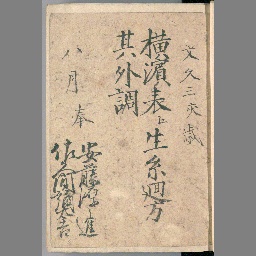 文久三亥歳
横濱表ニ生糸廻方
其外調
八月 奉
安藤
佐